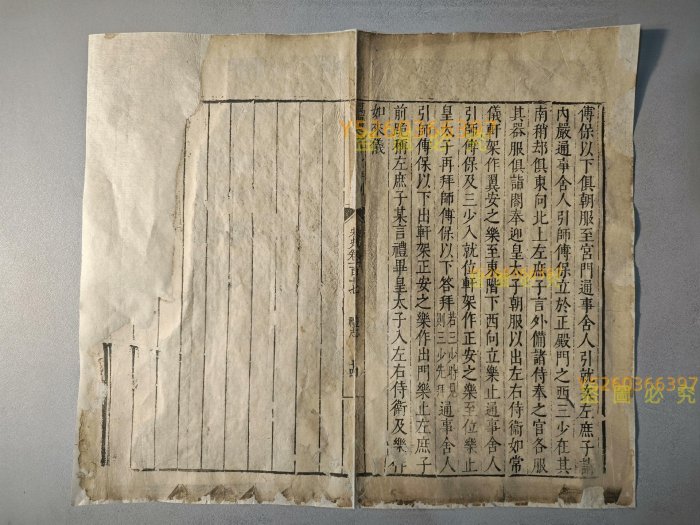 傅保以下俱朝服至宮門通事舍人引就
左庶子請
內嚴通事舍人引師傅保立於正殿門之西三少在其
南稍却俱東向北上左庶子言外備諸侍奉之官各服
其器服俱詣閤奉迎皇太子朝服以出左右侍衛如常
儀軒架作翼安之樂至東階下西向立樂止通事舍人
引師傅保及三少入就位軒架作正安之樂至位樂止
皇太子再拜師傅保以下答拜若三少特見則三少先拜通事舍人
引師傅保以下出軒架正安之樂作出門樂止左庶子
前跪稱左庶子某言禮畢皇太子入左右侍衛及樂
如來儀
卷一百十七
禮志
Y5260366397
盜圖必究
Y5260366397
盜圖必究